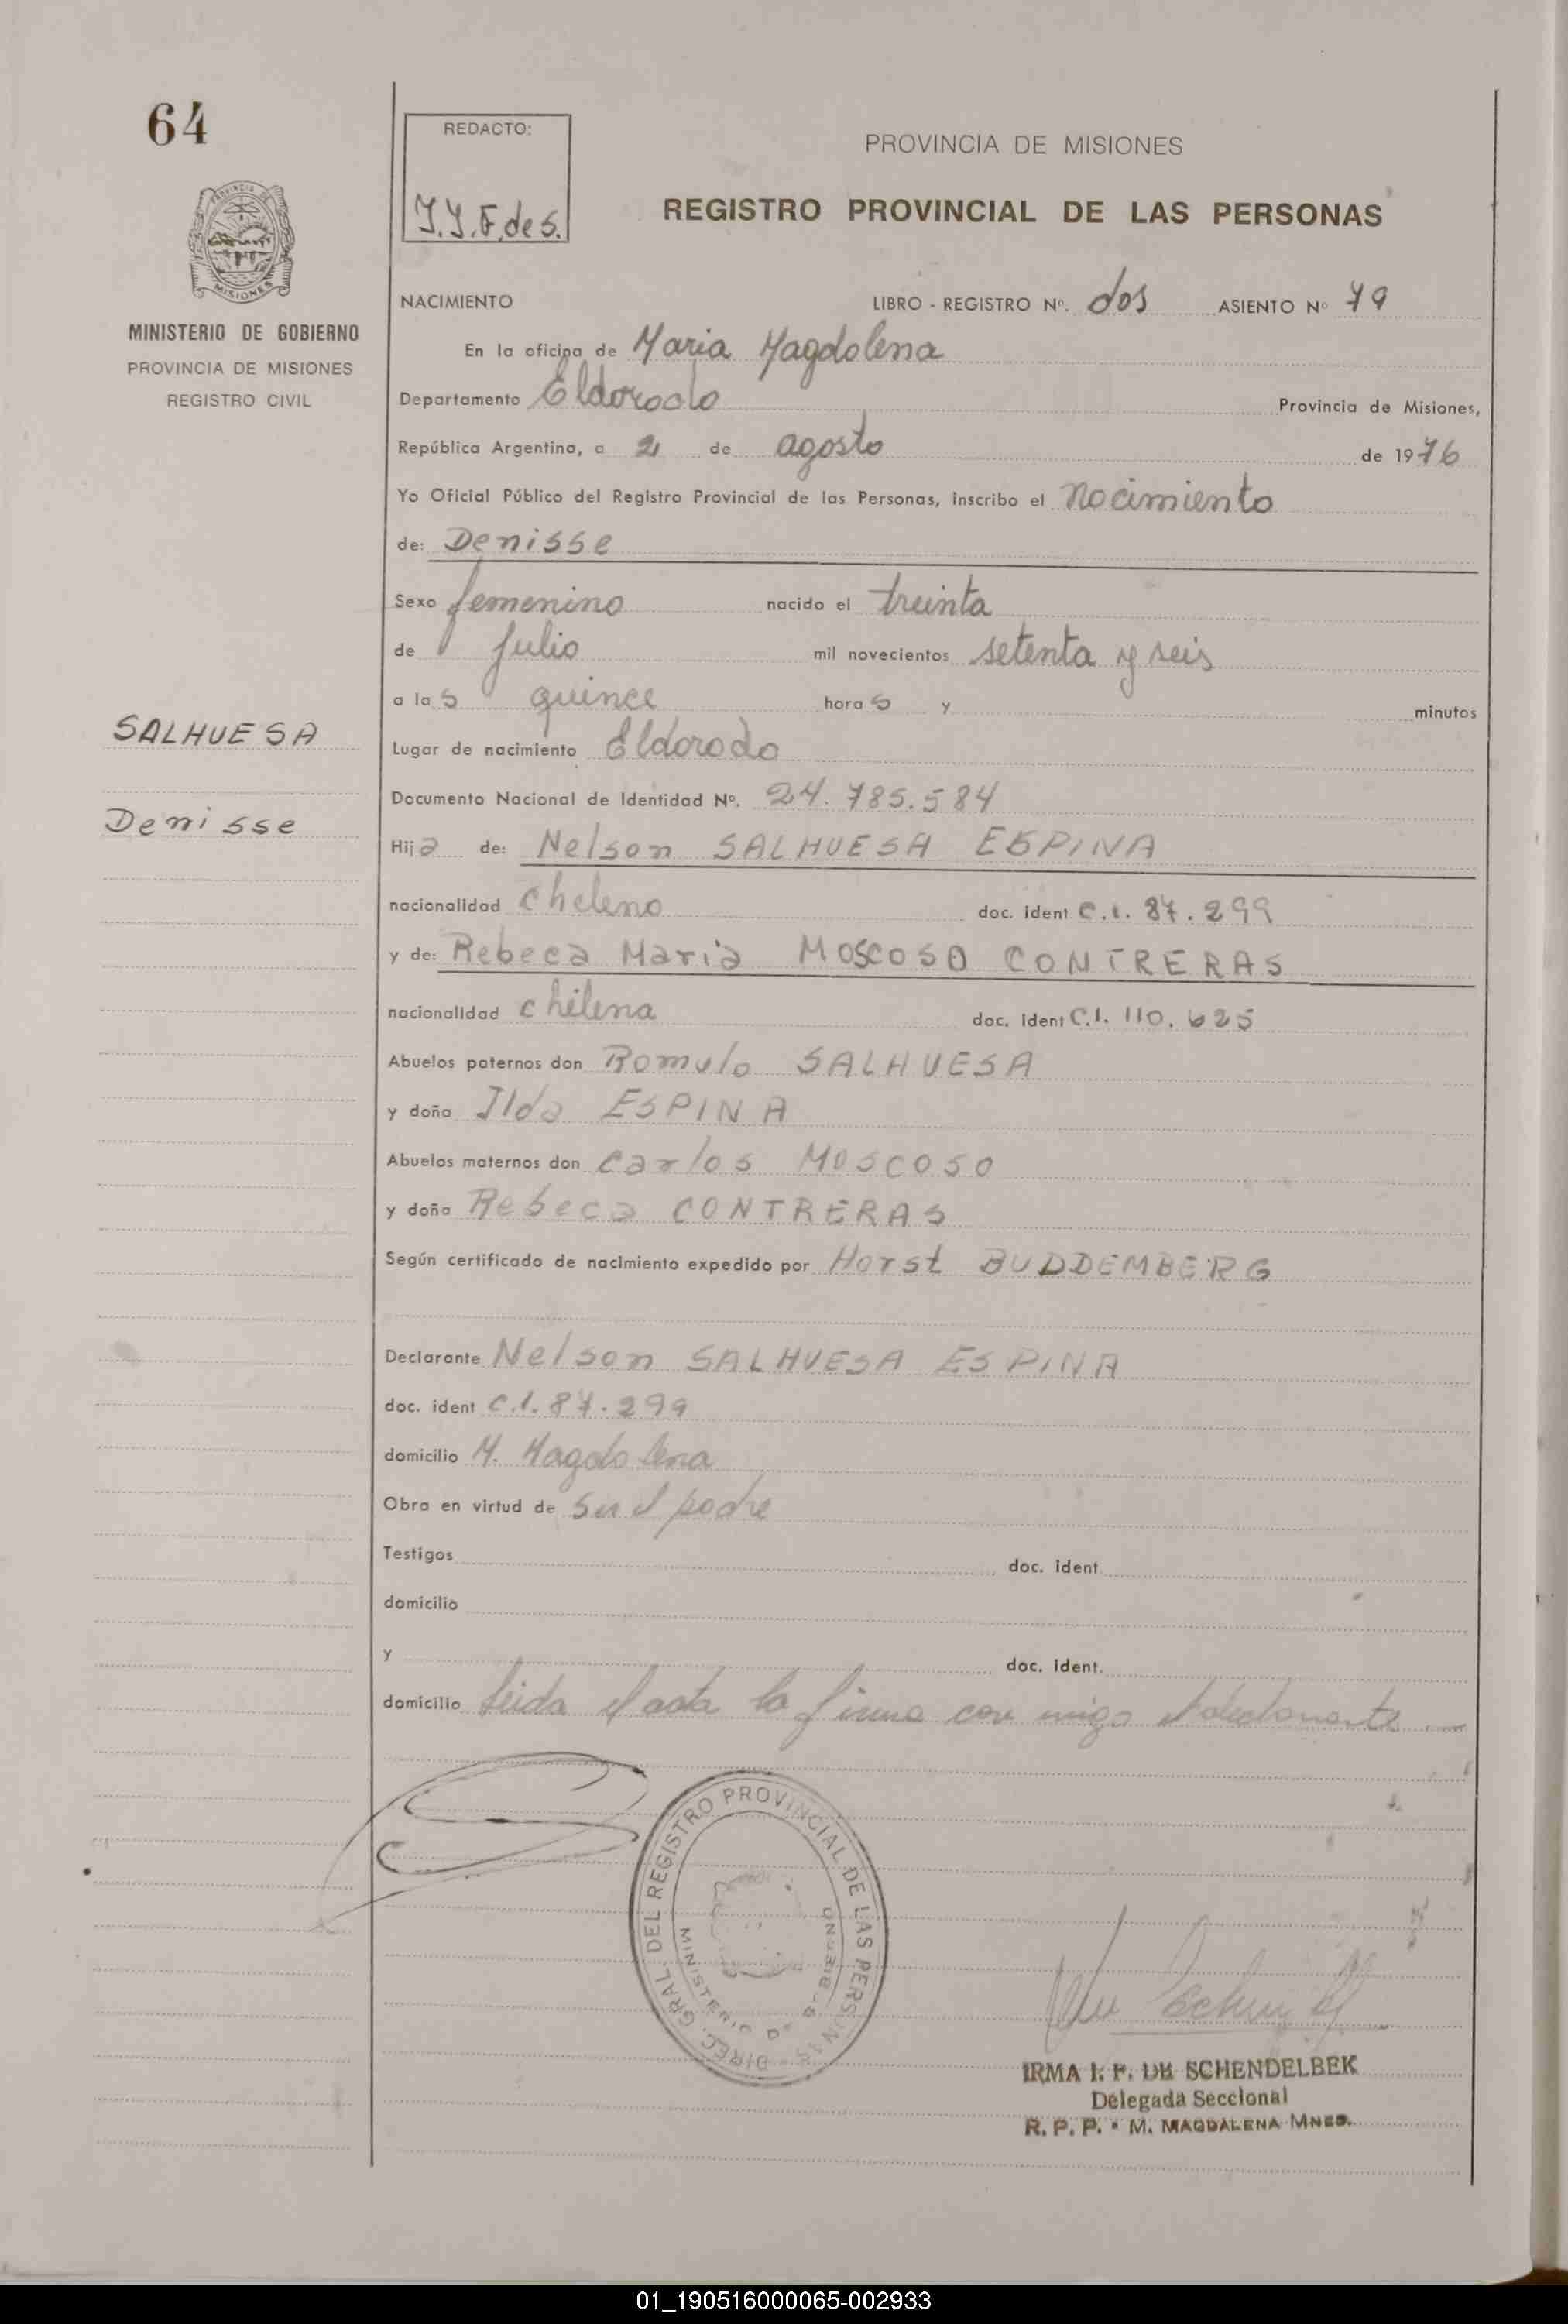 64
REDACTO:
PROVINCIA DE MISIONES
REGISTRO PROVINCIAL DE LAS PERSONAS
PROVINCIA DE
MISIONES
MINISTERIO DE GOBIERNO
PROVINCIA DE MISIONES
REGISTRO CIVIL
NACIMIENTO LIBRO - REGISTRO Nº. dos ASIENTO Nº 79
En la oficina de Maria Magdalena
Departamento Eldorado Provincia de Misiones,
República Argentina, a 2 de agosto de 1976
Yo Oficial Público del Registro Provincial de las Personas, inscribo el nacimiento
de: Denisse
Sexo femenino nacido el treinta
de Julio mil novecientos setenta y seis
a las quince horas y minutos
SALHUESA
Lugar de nacimiento Eldorado
Documento Nacional de Identidad Nº. 24.785.584
Denisse
Hija de: Nelson SALHUESA ESPINA
nacionalidad cheleno doc. ident C.I. 87.299
y de: Rebeca Maria MOSCOSO CONTRERAS
nacionalidad chilena doc. ident C.I. 110.625
Abuelos paternos don Romulo SALHUESA
y doña Ilda ESPINA
Abuelos maternos don Carlos MOSCOSO
y doña Rebeca CONTRERAS
Según certificado de nacimiento expedido por Horst BUDDEMBERG
Declarante Nelson SALHUESA ESPINA
doc. ident C.I. 87.299
domicilio M. Magdalena
Obra en virtud de ser el padre
Testigos doc. ident
domicilio
y doc. ident.
domicilio leida el acta la firma con migo el declarante
DIREC. GRAL. DEL REGISTRO PROVINCIAL DE LAS PERSONAS
MINISTERIO DE GOBIERNO
IRMA I. F. DE SCHENDELBEK
Delegada Seccional
R. P. P. - M. MAGDALENA MNES.
01_190516000065-002933